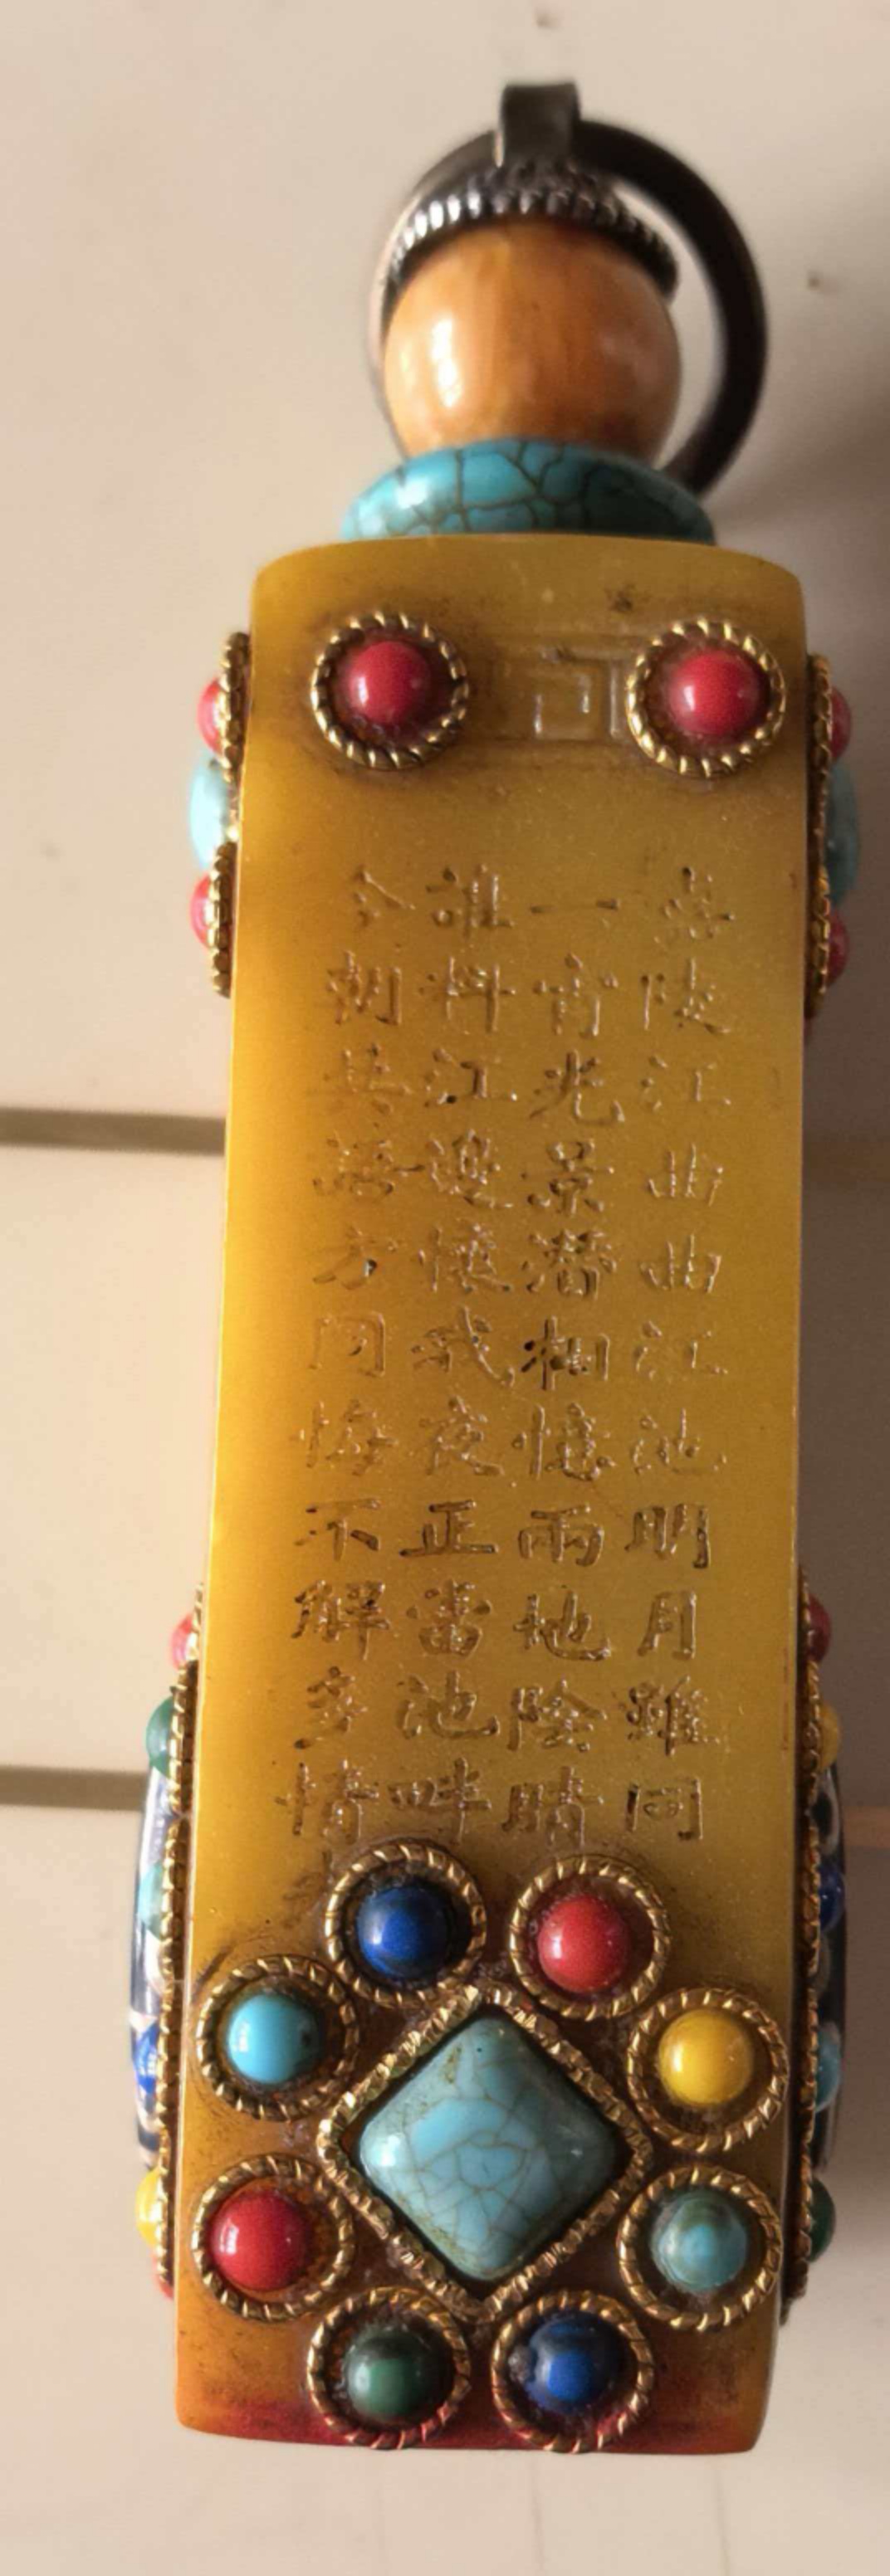 嘉陵江曲曲江池明月雖同
一宵光景潛相憶兩地陰晴
誰料江邊懷我夜正當池畔
今朝共語方同悔不解多情